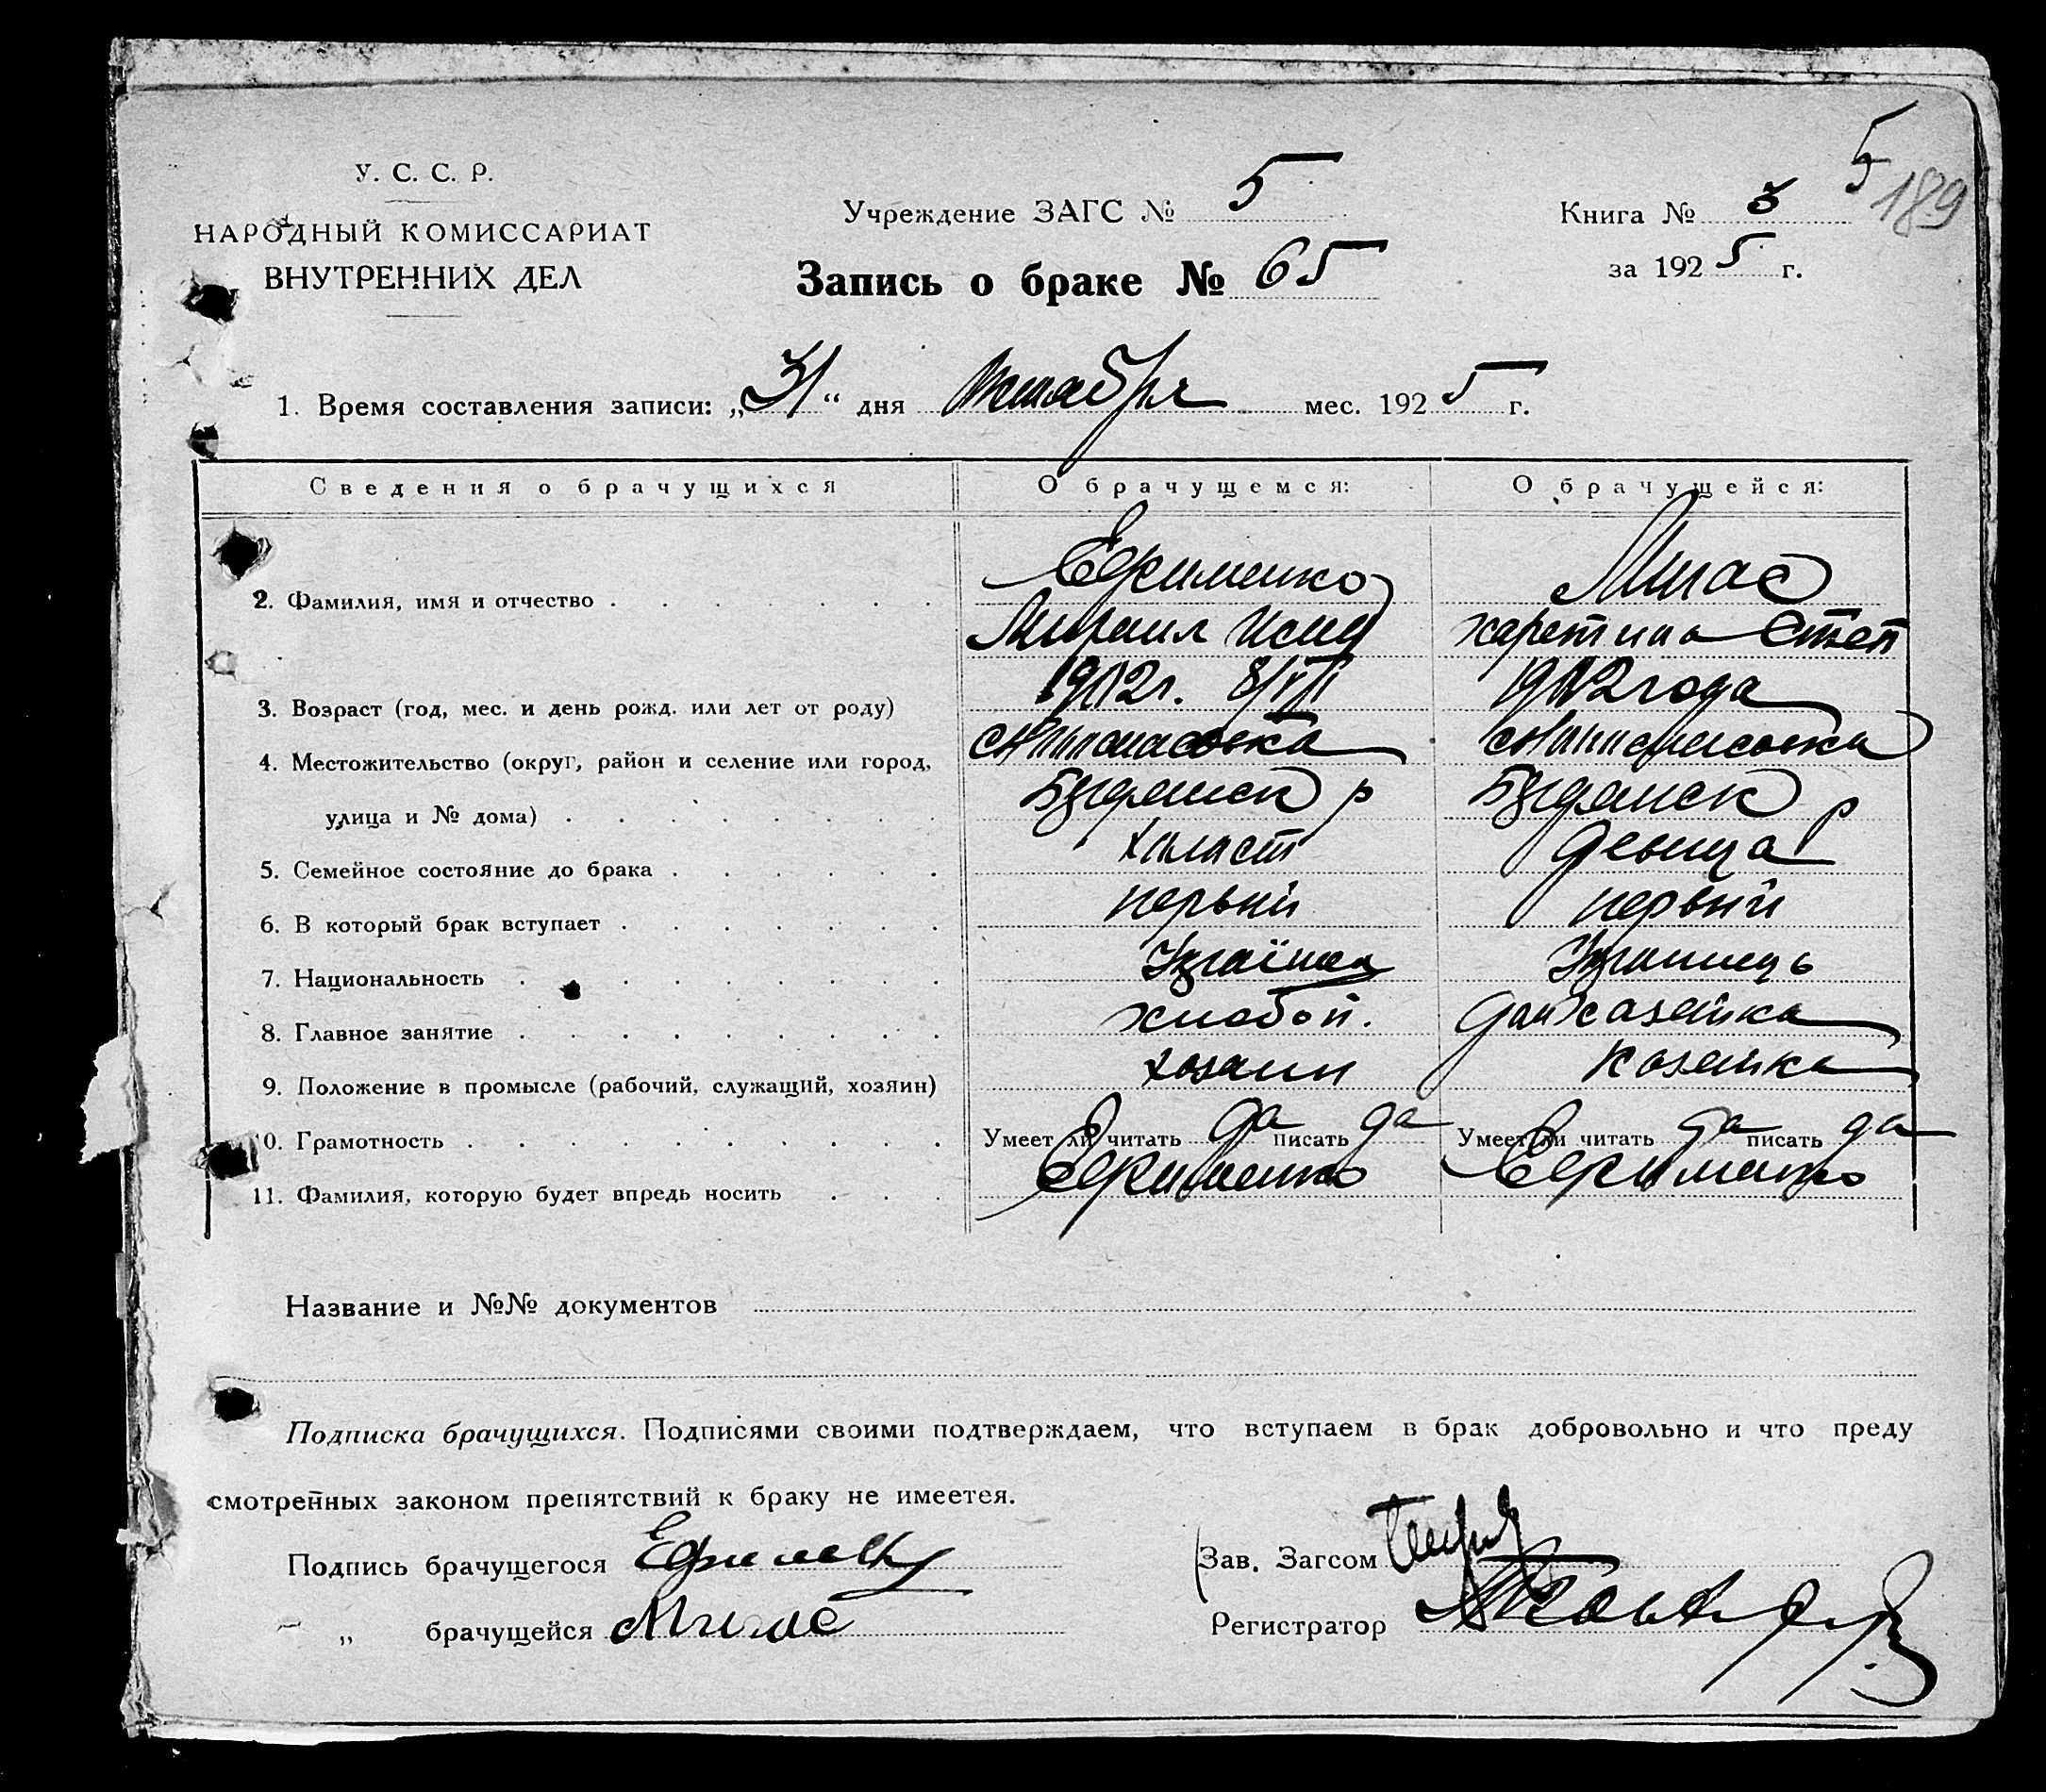 5
189
У. С. С. Р.
НАРОДНЫЙ КОМИССАРИАТ
ВНУТРЕННИХ ДЕЛ
Учреждение ЗАГС № 5
Книга № 3
за 1925 г.
Запись о браке № 65
1. Время составления записи: „31“ дня Октября мес. 1925 г.
Сведения о брачущихся О брачущемся: О брачущейся:
Ефименко Мигас
2. Фамилия, имя и отчество
Михаил Харетина Степ
1902г. 8/VIII 1902 года
3. Возраст (год, мес. и день рожд. или лет от роду)
4. Местожительство (округ, район и селение или город,
Будянск р Будянск р
улица и № дома)
холост девица
5. Семейное состояние до брака
первый первый
6. В который брак вступает
7. Национальность
хлебоп. домхазейка
8. Главное занятие
хозаин хозейка
9. Положение в промысле (рабочий, служащий, хозяин)
10. Грамотность Умеет ли читать да писать да Умеет ли читать да писать да
11. Фамилия, которую будет впредь носить Ефименко Ефименко
Название и №№ документов
Подписка брачущихся. Подписями своими подтверждаем, что вступаем в брак добровольно и что преду
смотренных законом препятствий к браку не имеетея.
Подпись брачущегося Ефименко
Зав. Загсом
„ брачущейся Мигас
Регистратор